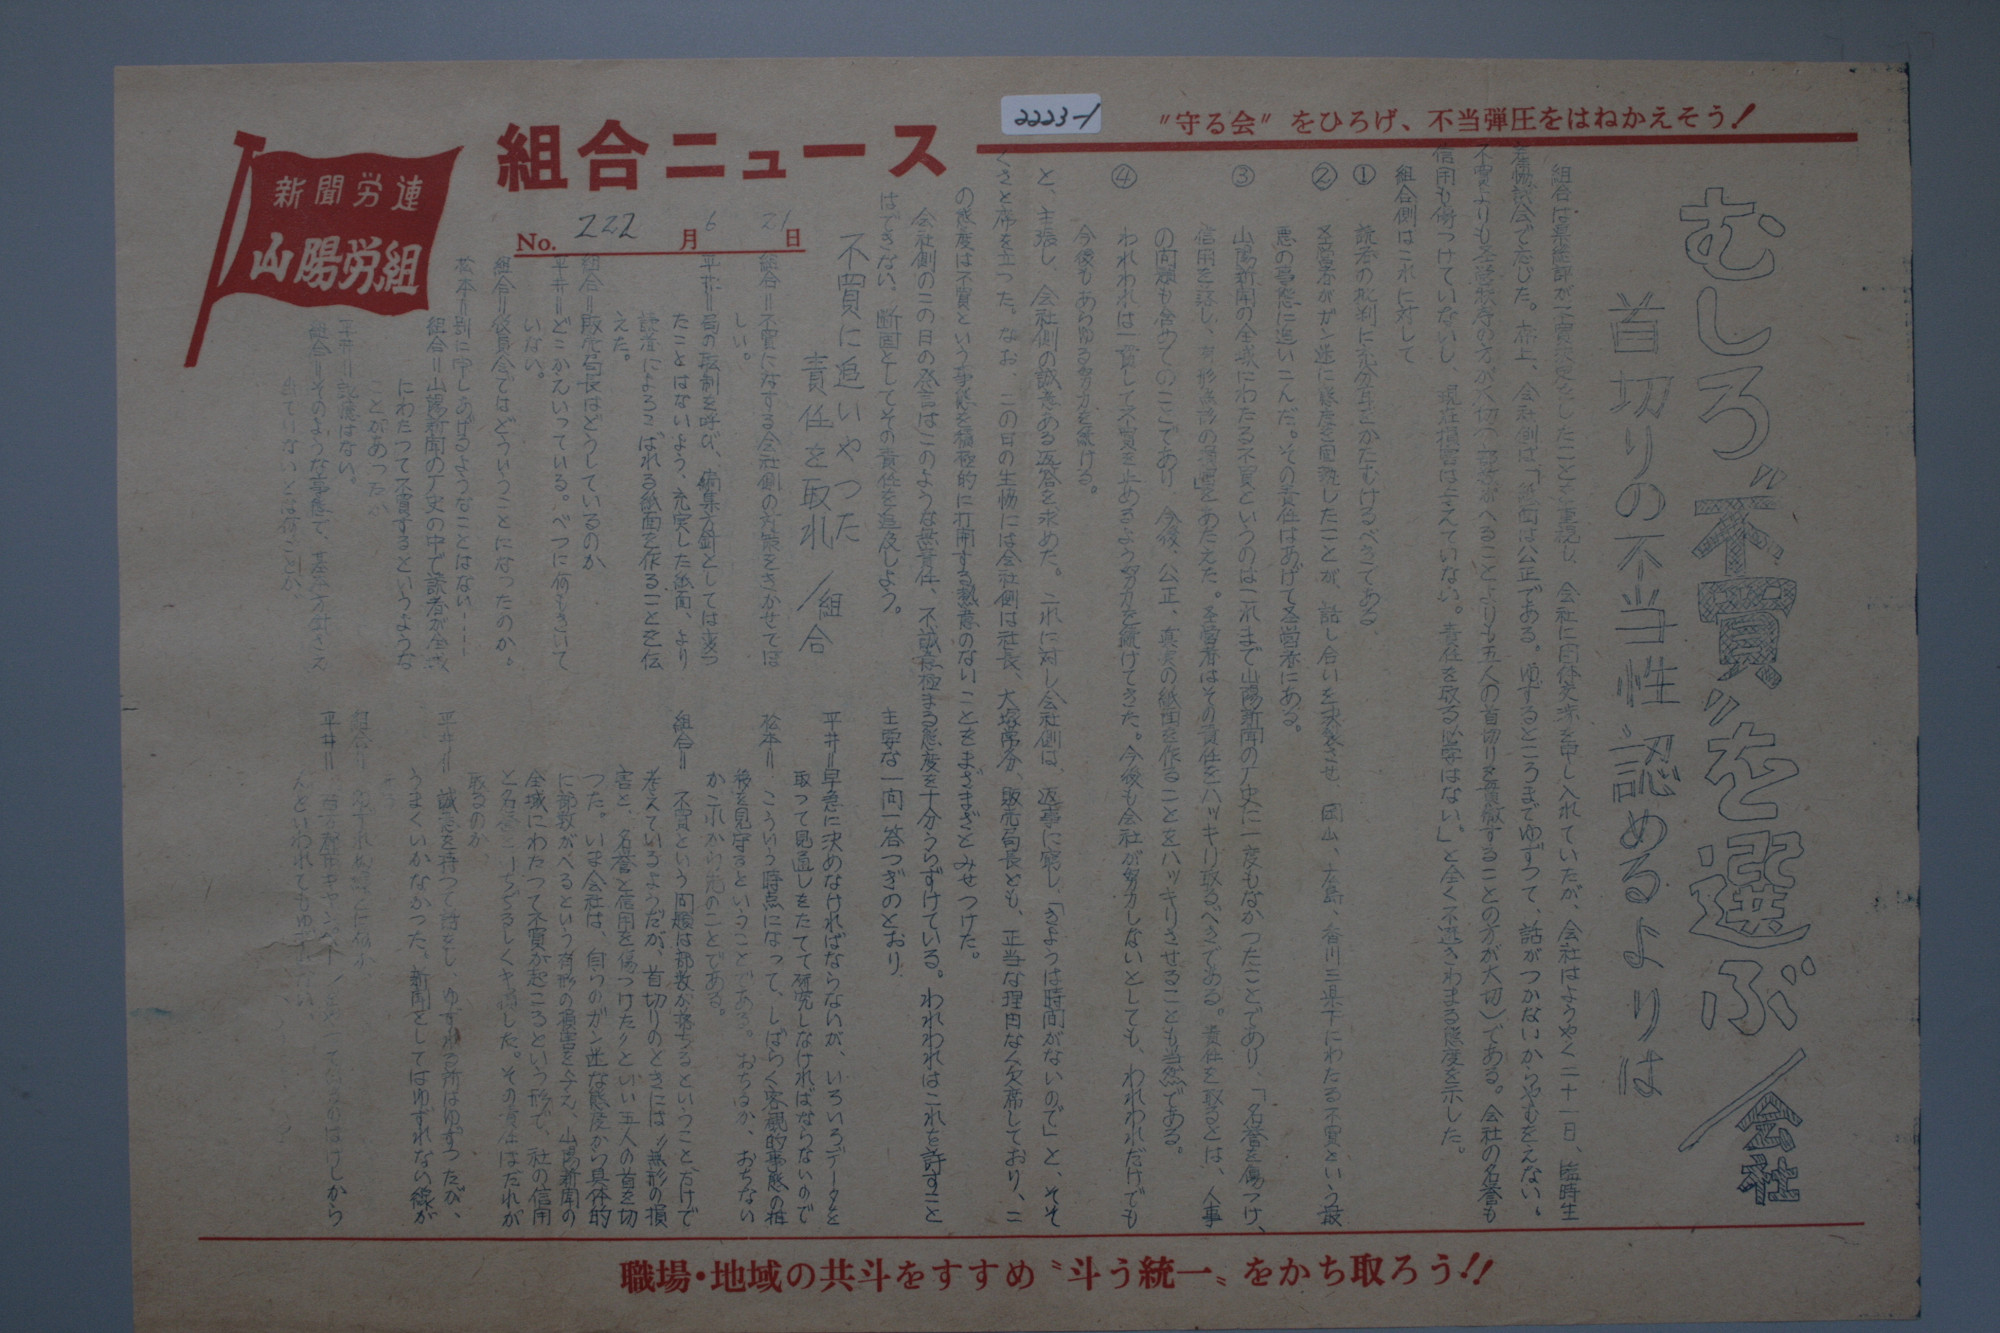 2223-1
〝守る会〟をひろげ、不当弾圧をはねかえそう!
組合ニュース
No. 222 6月 21日
新聞労連
山陽労組
むしろ〝不買〟を選ぶ/会社
首切りの不当性認めるよりは
組合は県総評が不買決定をしたことを重視し、会社に団体交渉を申し入れていたが、会社はようやく二十一日、臨時生
産協議会で応じた。席上、会社側は「紙面は公正である。ゆずるところまでゆずって、話がつかないからやむをえない。
不買よりも
の方が大切(部数がへることよりも五人の首切りを貫徹することの方が大切)である。会社の名誉も
信用も傷つけていないし、現在損害は与えていない。責任を取る必要はない」と全く不遜きわまる態度を示した。
組合側はこれに対して
① 読者の批判に充分耳をかたむけるべきである
② 経営者がガン迷に態度を固執したことが、話し合いを決裂させ、岡山、広島、香川三県下にわたる不買という最
悪の事態に追いこんだ。その責任はあげて経営者にある。
③ 山陽新聞の全域にわたる不買というのはこれまで山陽新聞の丁史に一度もなかったことであり、「名誉を傷つけ、
信用を
し、有形無形の損害」をあたえた。経営者はその責任をハッキリ取るべきである。責任を取るとは、人事
の問題も含めてのことであり、今後、公正、真実の紙面を作ることをハッキリさせることも当然である。
④ われわれは一貫して不買を止めるよう努力を続けてきた。今後も会社が努力しないとしても、われわれだけでも
今後もあらゆる努力を続ける。
と、主張し、会社側の誠意ある返答を求めた。これに対し会社側は、返事に窮し、「きようは時間がないので」と、そそ
くさと席を立つた。なお、この日の生協には会社側は社長、大塚常務、販売局長とも、正当な理由なく欠席しており、こ
の態度は不買という事態を積極的に打開する熱意のないことをまざまざとみせつけた。
会社側のこの日の発言はこのような無責任、不誠意極まる態度を十分うらずけている。われわれはこれを許すこと
はできない。断固としてその責任を追及しよう。
主要な一問一答つぎのとおり
不買に追いやった
責任を取れ/組合
組合=不買にたする会社側の方策をきかせてほ
しい。
平井=局の
を呼び、編集方針としては変つ
たことはないよう、充実した紙面、より
読者によろこばれる紙面を作ることを伝
えた。
組合=販売局長はどうしているのか
平井=どこかえいっている。べつに何もきいて
いない。
組合=役員会ではどういうことになったのか。
松本=別に申しあげるようなことはない……
組合=山陽新聞の丁史の中で読者が全域
にわたつて不買するというような
ことがあったか
平井=記憶はない。
組合=そのような事態で、基本方針さえ
出ていないとは何ごとか、
平井=早急に決めなければならないが、いろいろデータを
取って見通しをたてて研究しなければならないので
松本=こういう時点になって、しばらく客観的事態の推
後を見守るということである。おちるか、おちない
かこれから先のことである。
組合=不買という問題は部数が落ちるということだけで
考えているようだが、首切りのときには〝無形の損
害と、名誉と信用を傷つけた〟といい五人の首を切
つた。いま会社は、自らのガン迷な態度から具体的
に部数がへるという有形の損害を与え、山陽新聞の
全域にわたって不買が起こるという形で、社の信用
と名誉をいちぢるしくキ損した。その責任はだれが
取るのか
平井=誠意を持つて話をし、ゆずれる所はゆずつたが、
うまくいかなかった。新聞としてはゆずれない線が
組合=
平井=
はけしから
んといわれてもゆずれない、
職場・地域の共斗をすすめ〝斗う統一〟をかち取ろう!!